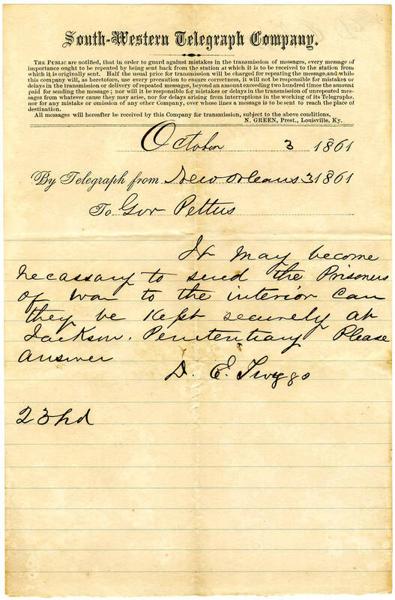 South-Western Telegraph Company.
THE PUBLIC are notified, that in order to guard against mistakes in the transmission of messages, every message of
importance ought to be repeated by being sent back from the station at which it is to be received to the station from
which it is originally sent. Half the usual price for transmission will be charged for repeating the message, and while
this company will, as heretofore, use every precaution to ensure correctness, it will not be responsible for mistakes or
delays in the transmission or delivery of repeated messages, beyond an amount exceeding two hundred times the amount
paid for sending the message; nor will it be responsible for mistakes or delays in the transmission of unrepeated mes-
sages from whatever cause they may arise, nor for delays arising from interruptions in the working of its Telegraphs,
nor for any mistake or omission of any other Company, over whose lines a message is to be sent to reach the place of
destination.
All messages will hereafter be received by this Company for transmission, subject to the above conditions.
N. GREEN, Prest., Louisville, Ky.
October 3 1861
By Telegraph from New Orleans 3 1861
To Gov Pettus
It may become
necassary to send the Prisoners
of war to the interior Can
they be Kept securely at
Jackson. Penetentiary Please
answer
D. E. Twiggs
23 pd